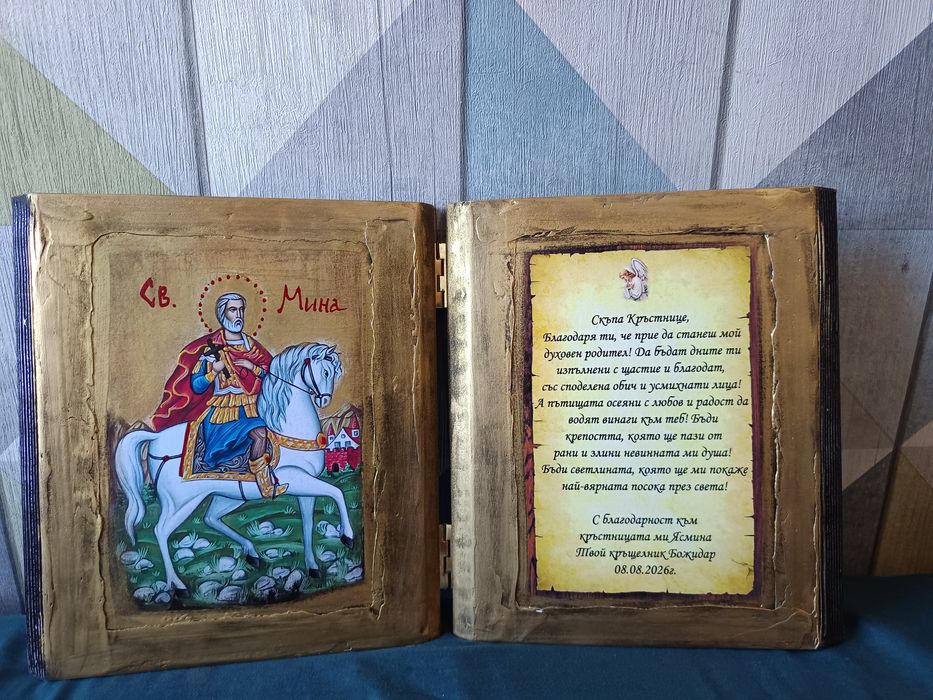 Св. Мина
Скъпа Кръстнице,
Благодаря ти, че прие да станеш мой
духовен родител! Да бъдат дните ти
изпълнени с щастие и благодат,
със споделена обич и усмихнати лица!
А пътищата осеяни с любов и радост да
водят винаги към теб! Бъди
крепостта, която ще пази от
рани и злини невинната ми душа!
Бъди светлината, която ще ми покаже
най-вярната посока през света!
С благодарност към
кръстницата ми Ясмина
Твой кръщелник Божидар
08.08.2026г.